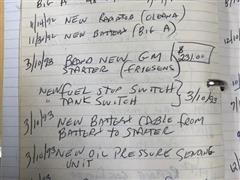 BIG A
11/30/92 NEW BATTERY (BIG A)
3/10/93 BRAND NEW GM STARTER (FRIESENS) $
NEW FUEL STOP SWITCH
" TANK SWITCH 3/10/93
3/10/93 NEW BATTERY CABLE FROM
BATTERY TO STARTER
3/10/93 NEW OIL PRESSURE SENDING
UNIT